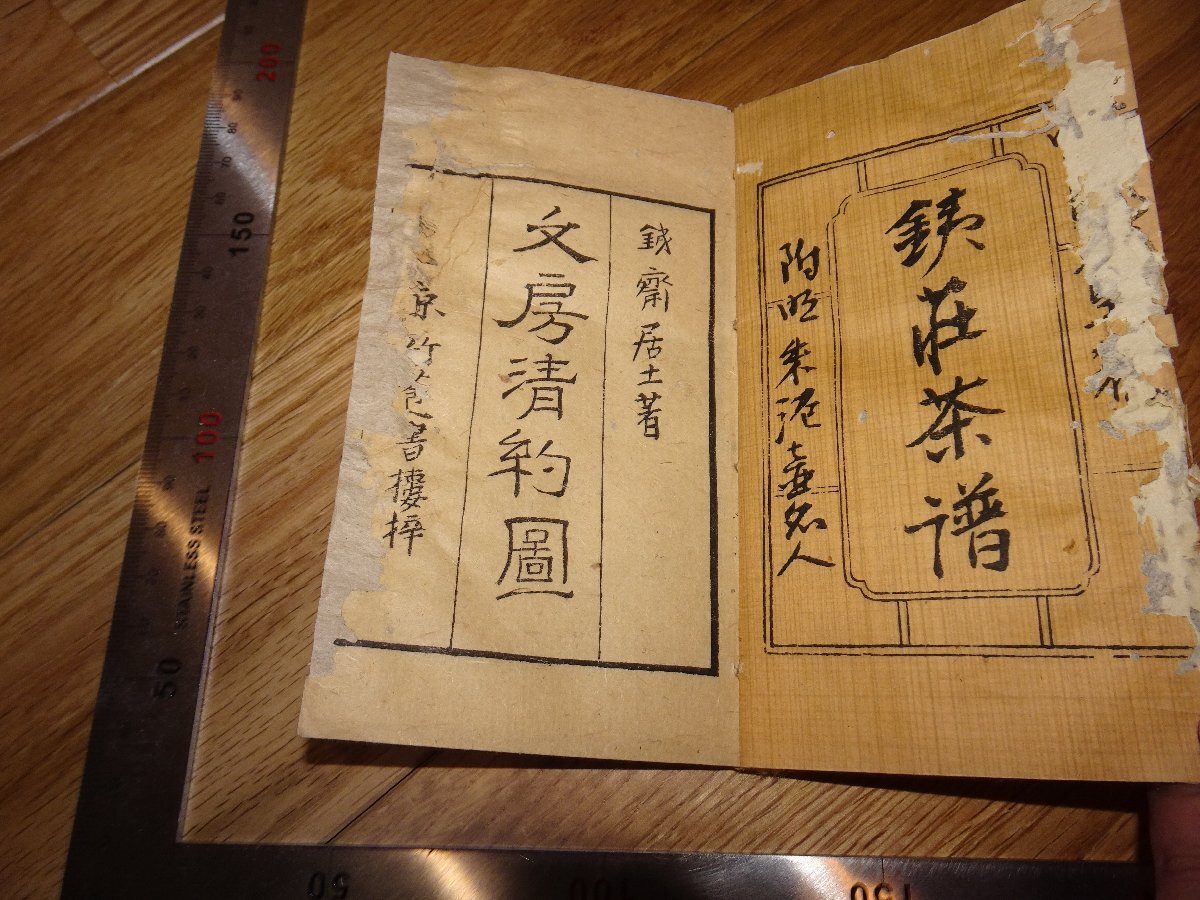 銕莊茶譜
附明朱泥壺名人
銕齋居士著
文房清約圖
京竹苞書樓梓
200
150
100
50
STAINLESS STEEL
50
100
150